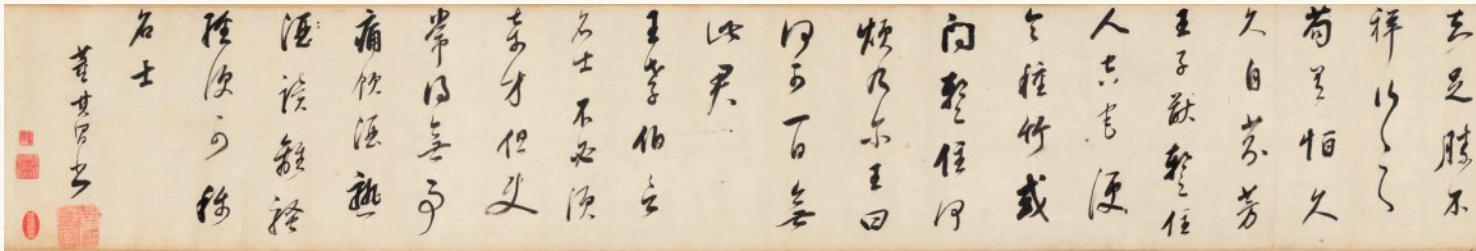 知足勝不
祥行之
苟有恆久
久自芬芳
王子猷暫住
人空宅便
令種竹或
問暫住何
煩乃尔王曰
何可一日無
此君
王孝伯言
名士不必須
奇才但使
常得無事
痛飲酒熟
酒讀離騷
經便可稱
名士
董其昌書